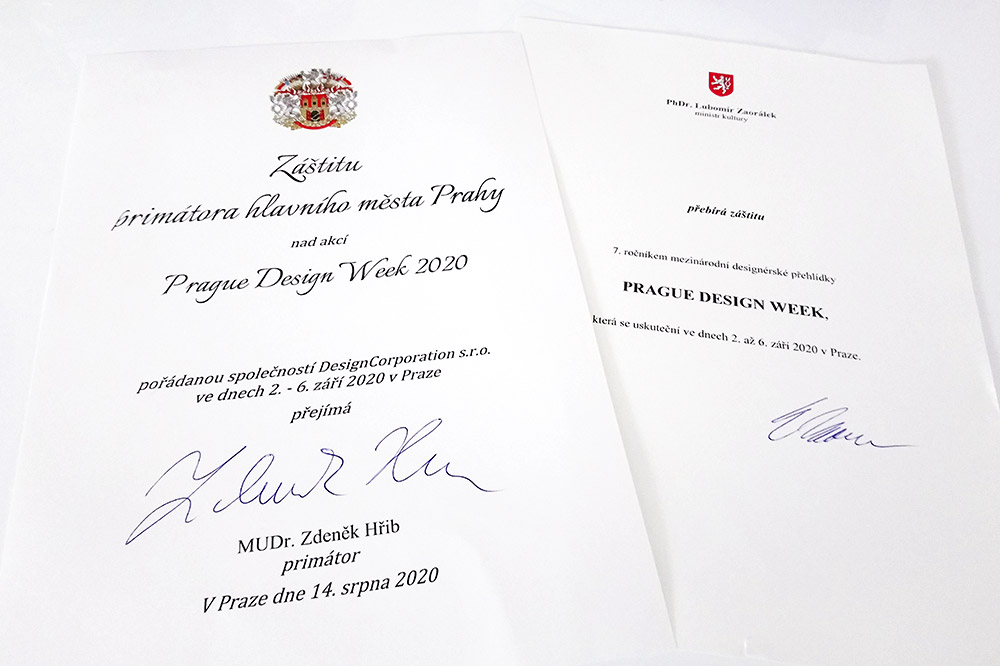 Záštitu
primátora hlavního města Prahy
nad akcí
Prague Design Week 2020
pořádanou společností DesignCorporation s.r.o.
ve dnech 2. - 6. září 2020 v Praze
přejímá
MUDr. Zdeněk Hřib
primátor
V Praze dne 14. srpna 2020
PhDr. Lubomír Zaorálek
ministr kultury
přebírá záštitu
7. ročníkem mezinárodní designérské přehlídky
PRAGUE DESIGN WEEK,
která se uskuteční ve dnech 2. až 6. září 2020 v Praze.